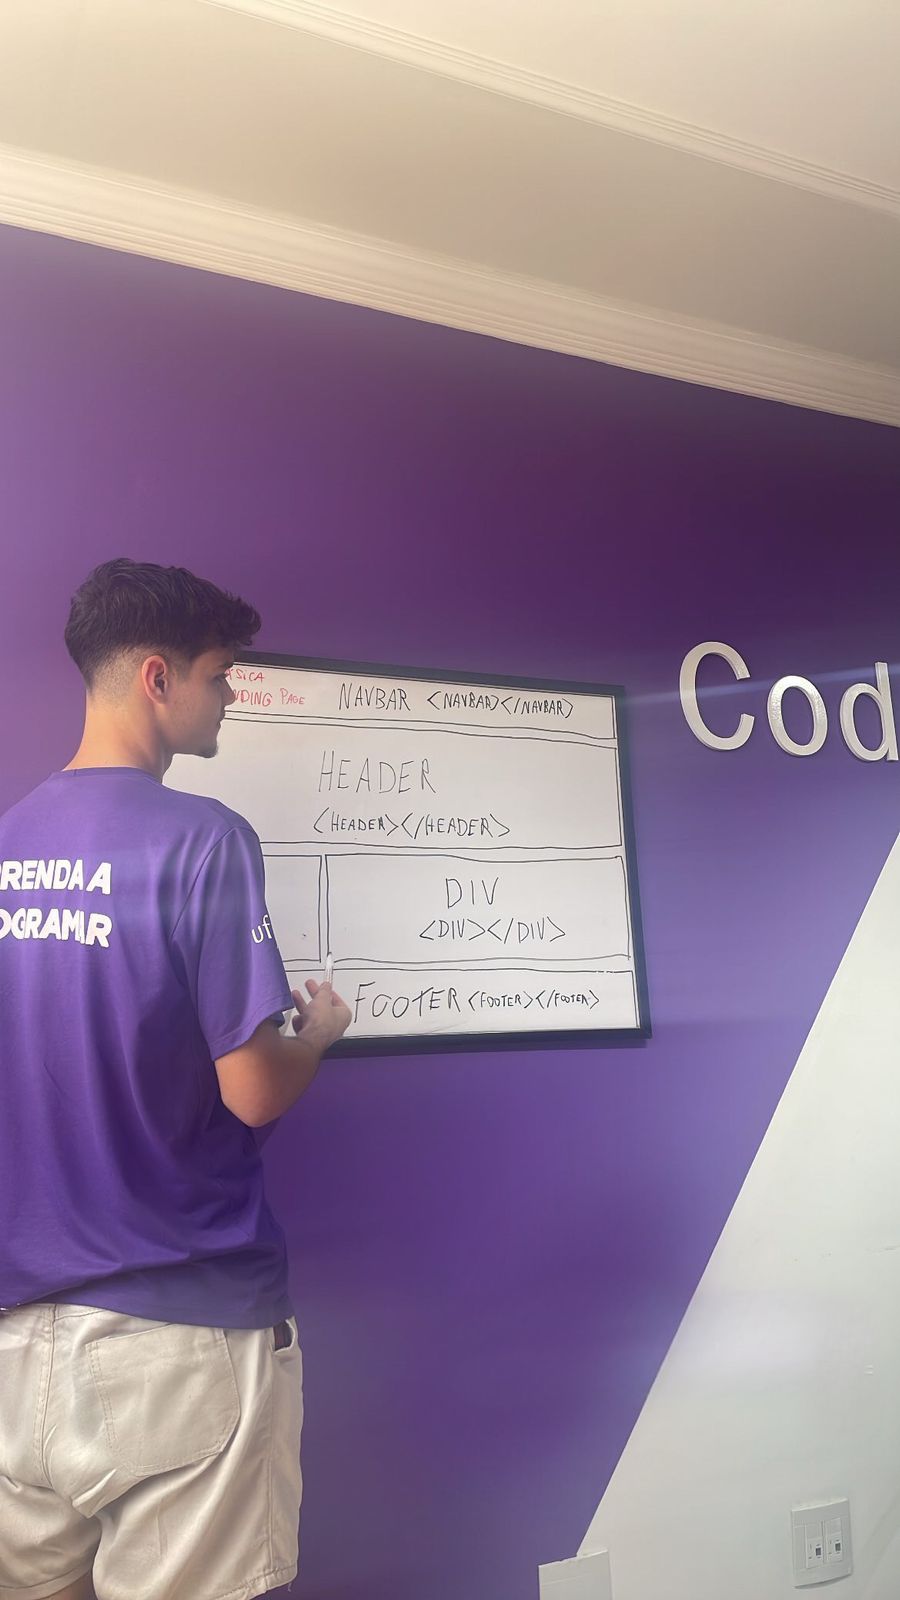 NAVBAR <NAVBAR></NAVBAR>
PAGE
HEADER
<HEADER></HEADER>
DIV
<DIV></DIV>
FOOTER <FOOTER></FOOTER>
Cod
RENDA A
OGRAMAR
uf